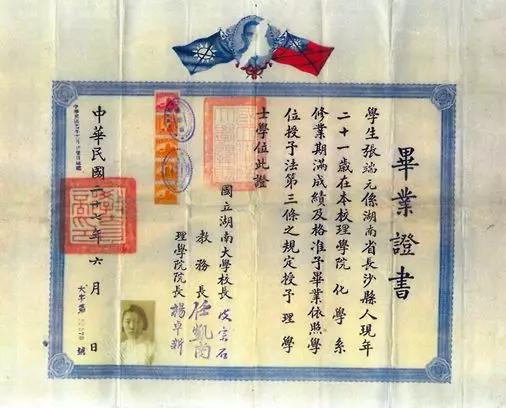 畢業證書
學生張端元係湖南省長沙縣人現年
二十一歲在本校理學院化學系
修業期滿成績及格准予畢業依照學
位授予法第三條之規定授予理學
士學位此證
國立湖南大學校長皮宗石
教務長任凱南
理學院院長楊卓新
中華民國二十七年六月 日
大字第 號